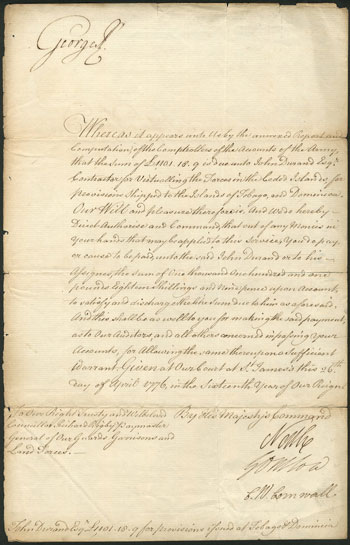 George R
Whereas it appears unto Us by the annexed Report and
Computation of the Comptrollers of the Accounts of the Army,
that the Sum of £1101.18.9 is due unto John Durand Esqr.
Contractor for Victualling the Forces in the Ceded Islands, for
Provisions Shipped to the Islands of Tobago, and Dominica.
Our Will and pleasure therefore is, And We do hereby
Direct Authorise and Command, that out of any Monies in
your hands that may be applied to this Service, You do pay,
or cause to be paid, unto the said John Durand or to his
Assignes, the sum of One thousand One hundred and one
pounds Eighteen Shillings and Nine pence upon Account,
to satisfy and discharge the like Sum due to him as aforesaid.
And this shall be as well to you for making the said payment,
as to Our Auditors, and all others concerned in passing your
Accounts, for Allowing the same thereupon a Sufficient
Warrant. Given at Our Court at St. James's this 26th
day of April 1776, in the Sixteenth Year of Our Reign
To Our Right Trusty and Welbeloved
Councillor Richard Rigby Paymaster
General of Our Guards Garrisons and
Land Forces.
By His Majesty's Command
North
C W Cornwall
John Durand Esqr £1101.18.9 for provisions at Tobago & Dominica